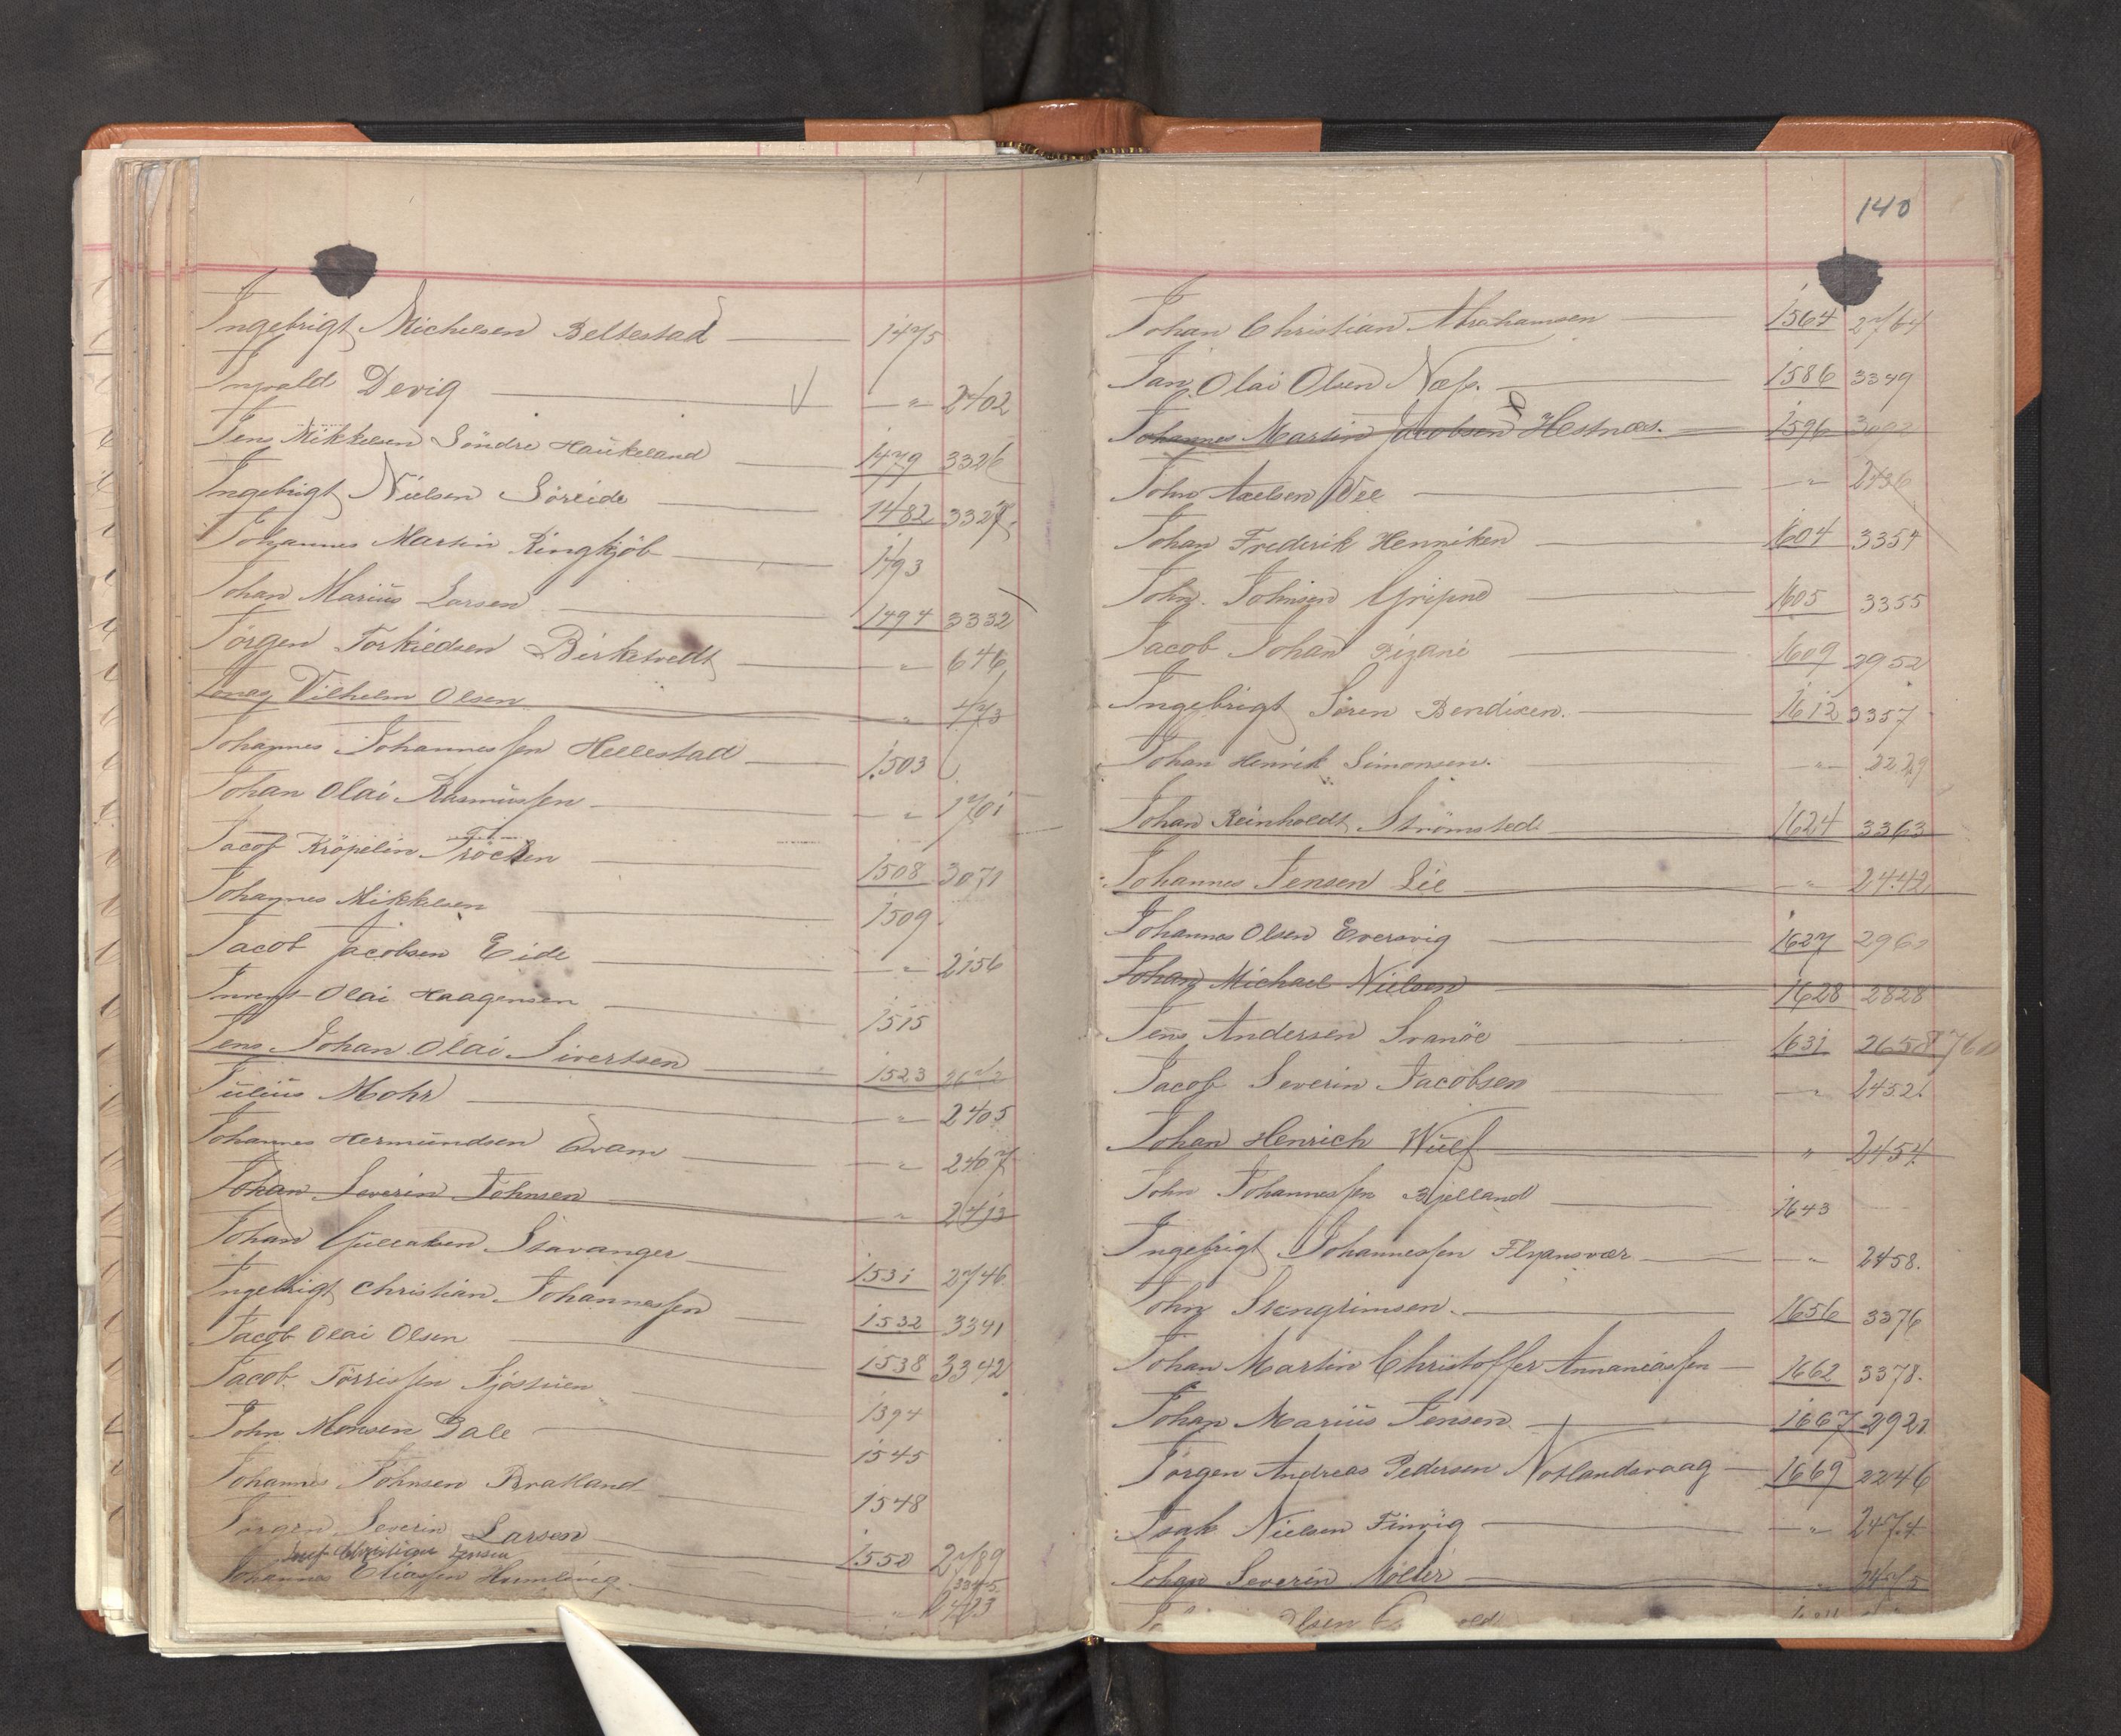 Ingebrigt Michelsen Bellestad 1475
Ingvald Devig " 2402
Jens Mikkelsen Söndre Haukeland 1479 3326
Ingebrigt Nielsen Söreide 1482 3327
Johannes Martin Ringkjöb 1493
Johan Marius Larsen 1494 3332
Jörgen Torkildsen Birketvedt " 646
Jonas Vilhelm Olsen " 473
Johannes Johannessen Hellestad 1503
Johan Olai Rasmussen " 1701
Jacob Kröpelin Tröchen 1508 3071
Johannes Mikkelsen 1509
Jacob Jacobsen Eide " 2156
Olai Haagensen 1515
Jens Johan Olai Sivertsen 1523
Julius Mohr " 2405
Johannes Hermundsen Qvam " 2407
Johan Severin Johnsen " 2413
Johan Gullaksen Stavanger 1531 2746
Ingebrigt Christian Johannessen 1532 3341
Jacob Olai Olsen 1538 3342
Jacob Törrissen Sjöstuen 1394
John Monsen Dale 1545
Johannes Johnsen Brakland 1548
Jörgen Severin Larsen 1550 2789
Josef Christian Jensen 3345
Johannes Eliassen Humlevig "
140
Johan Christian Abrahamsen 1564 2764
Jan Olai Olsen Næss. 1586 3349
Johannes Martin Jacobsen Hestnæs. 1596 3092
John Axelsen Vee " 2436
Johan Frederik Henriken 1604 3354
John Johnsen Gripne 1605 3355
Jacob Johan Pizani 1609 2952
Ingebrigt Sören Bendixen. 1612 3357
Johan Henrik Simonsen. " 2229
Johan Reinholdt Strömsted 1624 3363
Johannes Jensen Lie " 2442
Johannes Olsen Eversvig 1627 2960
Johan Michael Nielsen 1628 2828
Jens Andersen Svanöe 1631 2658
Jacob Severin Jacobsen " 2452
Johan Henrich Wulf " 2454
John Johannessen Bjelland 1643
Ingebrigt Johannessen Flyansvær " 2458.
John Stengrimsen. 1656 3376
Johan Martin Christoffer Annaniassen 1662 3378.
Johan Marius Jensen 1667 2921
Jörgen Andreas Pedersen Notlandsvaag 1669 2246
Isak Nielsen Finvig " 2474
Johan Severin Möller " 2475
Olsen